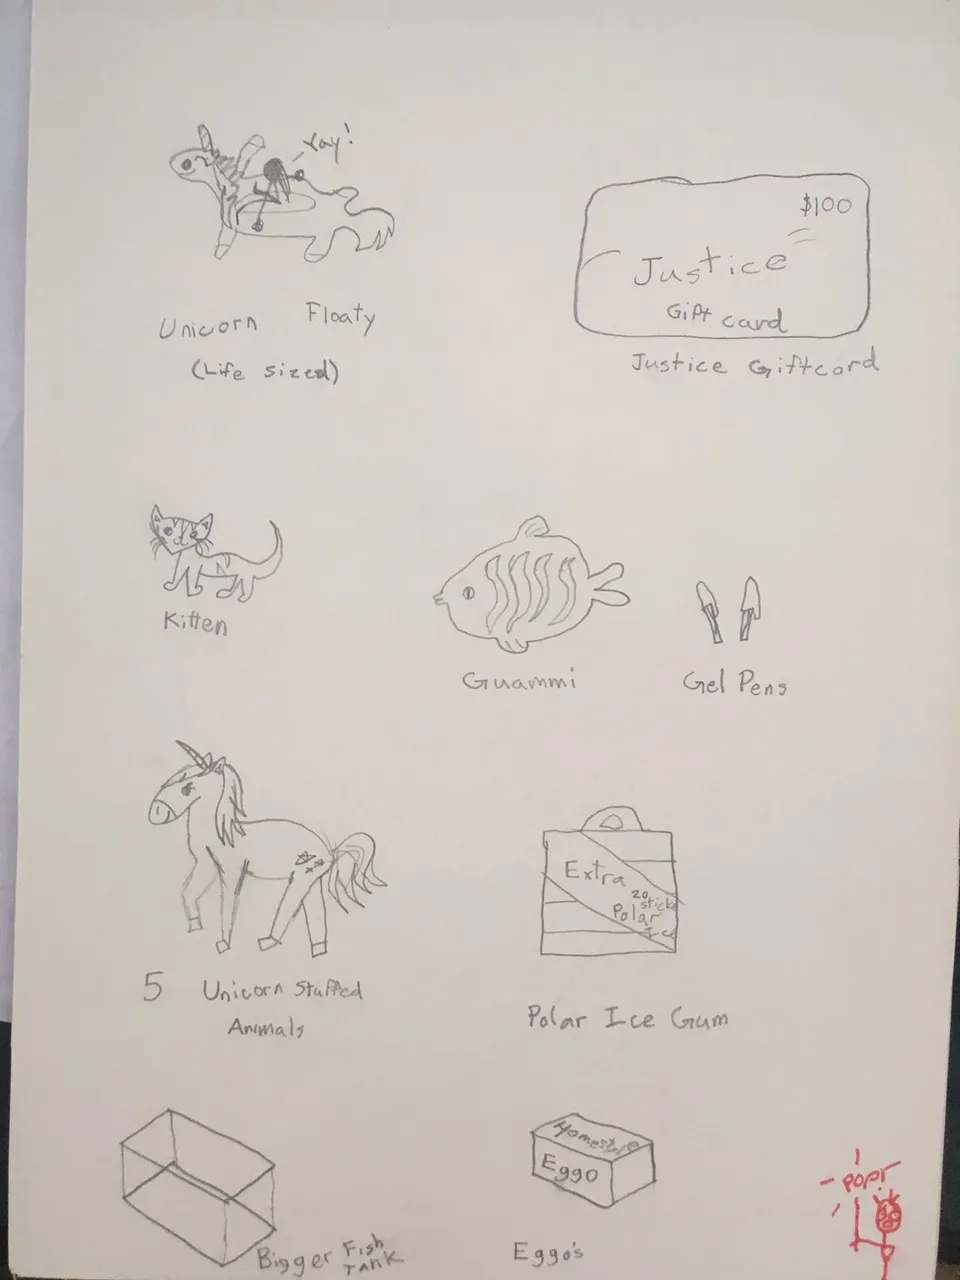 Yay!
Unicorn Floaty
(Life sized)
$100
Justice
Gift card
Justice Giftcard
Kitten
Guammi
Gel Pens
5 Unicorn Stuffed
Animals
Extra
20
sticks
Polar
Ice
Polar Ice Gum
Bigger Fish
Tank
Homestyle
Eggo
Eggo's
POP!